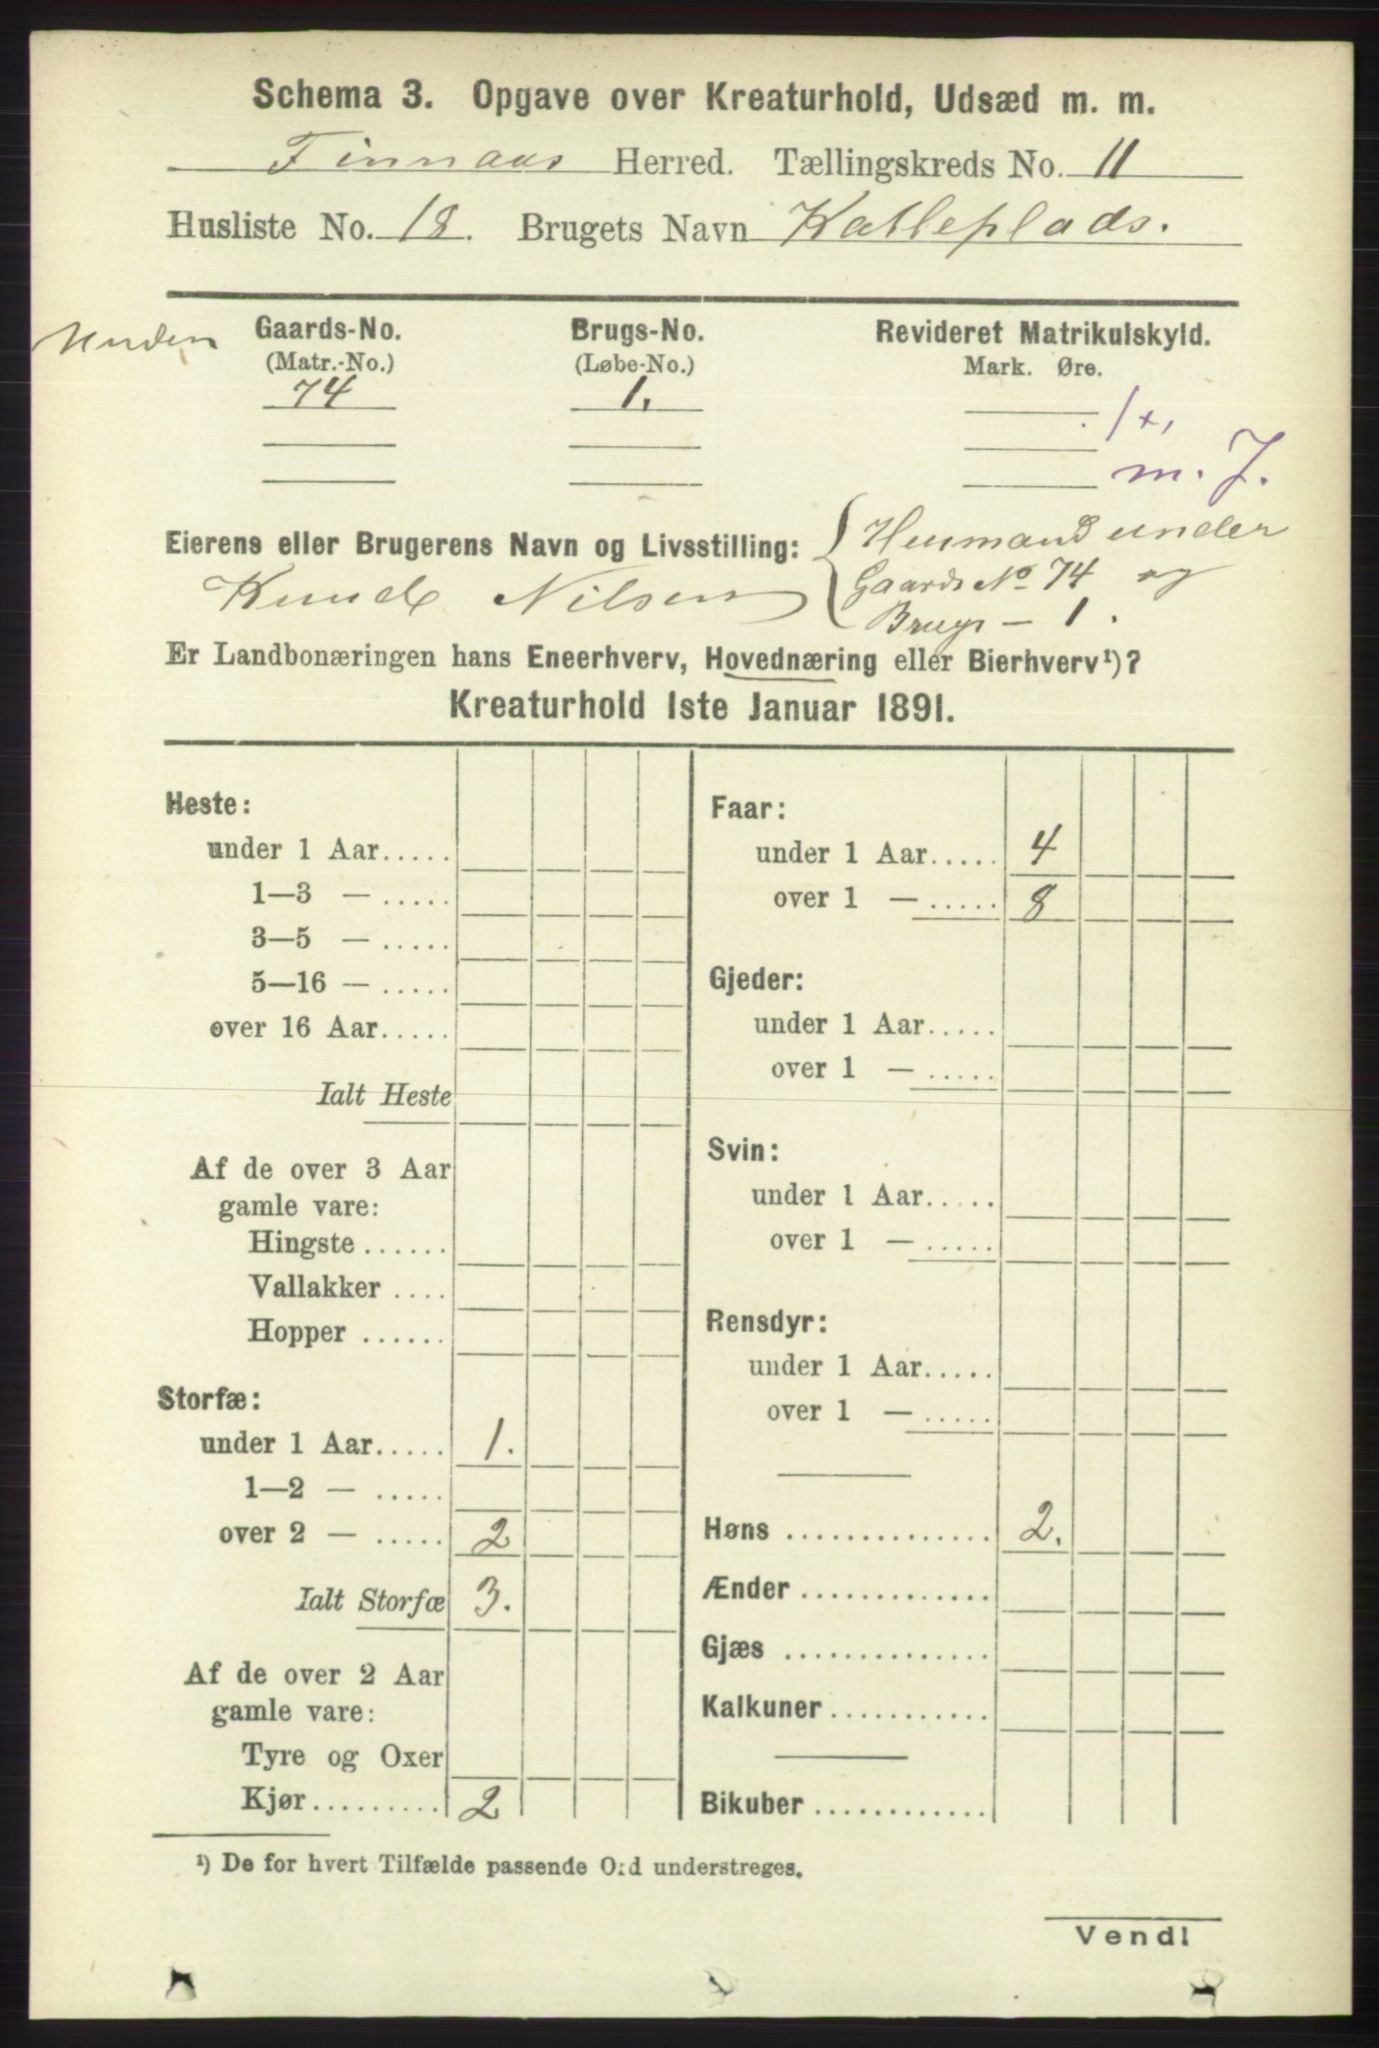 Schema 3. Opgave over Kreaturhold, Udsæd m. m.
Finnaas Herred. Tællingskreds No. 11
Husliste No. 18. Brugets Navn Katleplads.
Under
Gaards-No. Brugs-No. Revideret Matrikulskyld.
(Matr.-No.) (Løbe-No.) Mark. Øre.
74 1.
m. J.
Eierens eller Brugerens Navn og Livsstilling: Husmand under
Knud Nilsen Gaards No 74 og
Brugs — 1.
Er Landbonæringen hans Eneerhverv, Hovednæring eller Bierhverv¹)?
Kreaturhold 1ste Januar 1891.
Heste:
under 1 Aar.....
1—3 — .....
3—5 — .....
5—16 — .....
over 16 Aar.....
Ialt Heste
Af de over 3 Aar
gamle vare:
Hingste ......
Vallakker ....
Hopper ......
Storfæ:
under 1 Aar..... 1.
1—2 — .....
over 2 — ..... 2
Ialt Storfæ 3.
Af de over 2 Aar
gamle vare:
Tyre og Oxer
Kjør......... 2
Faar:
under 1 Aar..... 4
over 1 — ..... 8
Gjeder:
under 1 Aar.....
over 1 — .....
Svin:
under 1 Aar.....
over 1 — .....
Rensdyr:
under 1 Aar.....
over 1 — .....
Høns .............. 2.
Ænder .............
Gjæs ..............
Kalkuner ...........
Bikuber ............
¹) De for hvert Tilfælde passende Ord understreges.
Vend!